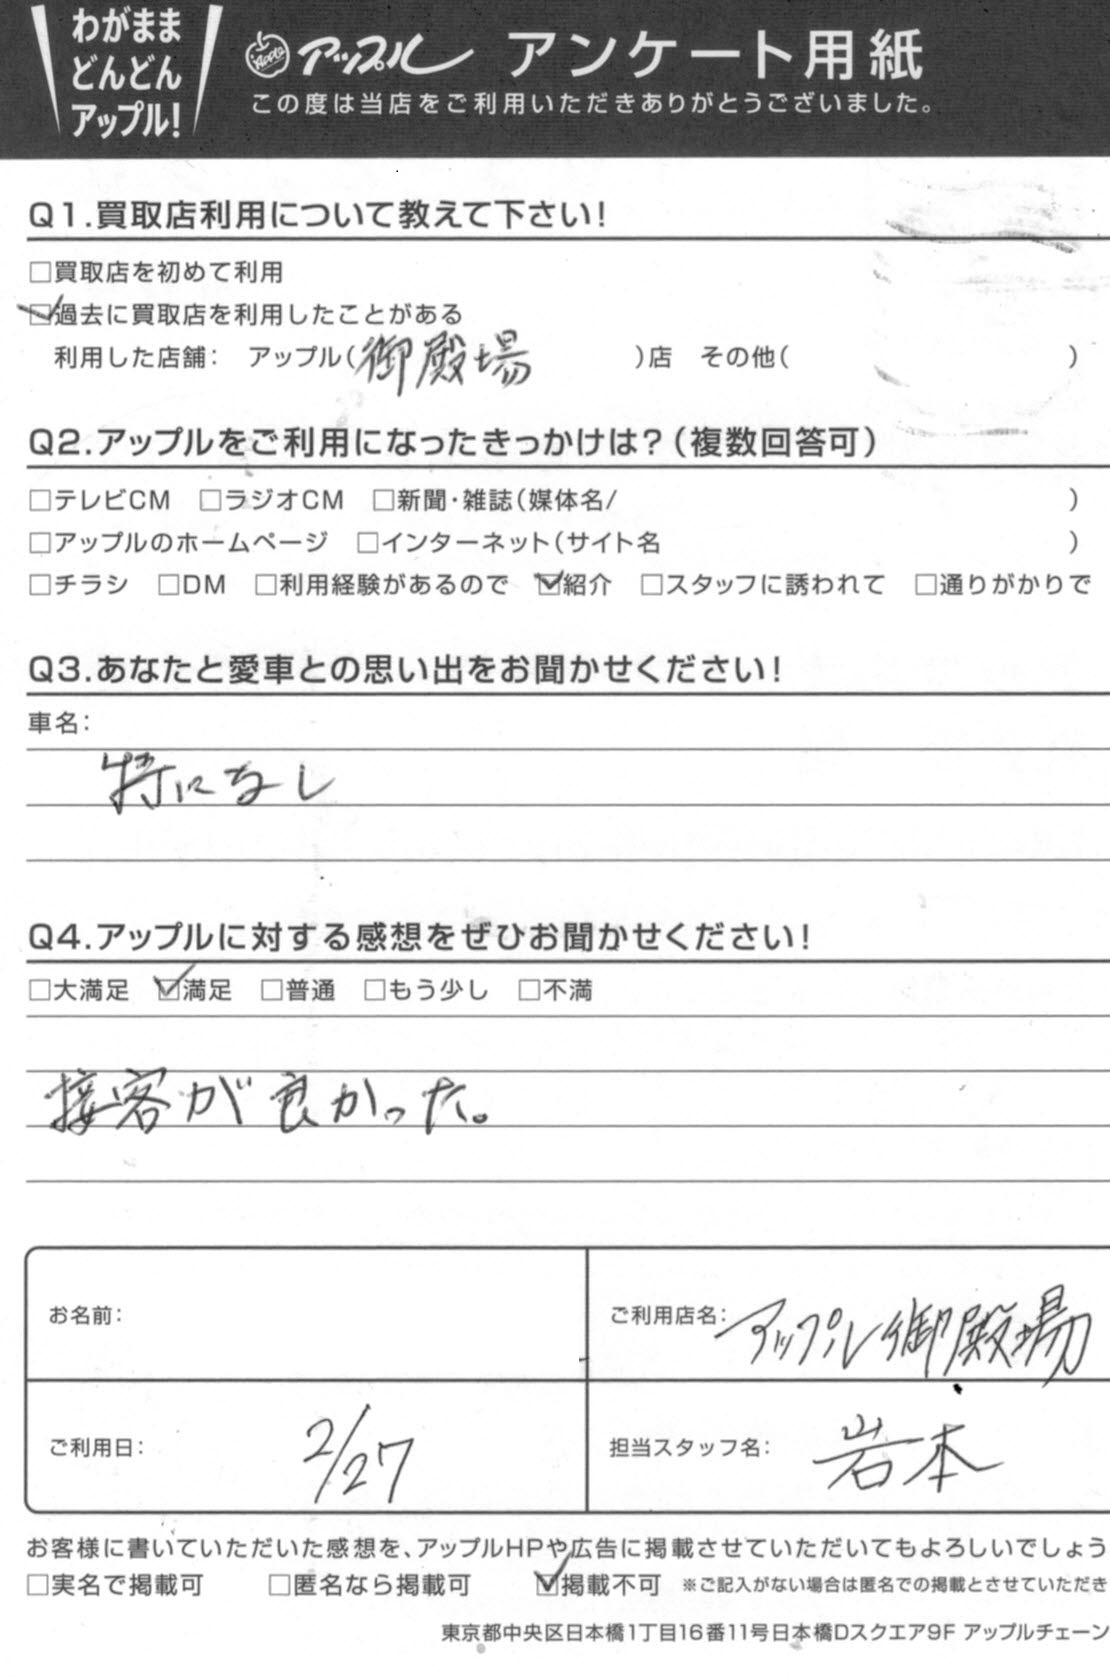 わがまま
どんどん
アップル!
Apple アップル アンケート用紙
この度は当店をご利用いただきありがとうございました。
Q1.買取店利用について教えて下さい!
□買取店を初めて利用
☑過去に買取店を利用したことがある
利用した店舗: アップル(御殿場 )店 その他( )
Q2.アップルをご利用になったきっかけは?(複数回答可)
□テレビCM □ラジオCM □新聞・雑誌(媒体名/ )
□アップルのホームページ □インターネット(サイト名 )
□チラシ □DM □利用経験があるので ☑紹介 □スタッフに誘われて □通りがかりで
Q3.あなたと愛車との思い出をお聞かせください!
車名:
特になし
Q4.アップルに対する感想をぜひお聞かせください!
□大満足 ☑満足 □普通 □もう少し □不満
接客が良かった。
お名前:
ご利用店名: アップル御殿場
ご利用日: 2/27
担当スタッフ名: 岩本
お客様に書いていただいた感想を、アップルHPや広告に掲載させていただいてもよろしいでしょう
□実名で掲載可 □匿名なら掲載可 ☑掲載不可 ※ご記入がない場合は匿名での掲載とさせていただき
東京都中央区日本橋1丁目16番11号日本橋Dスクエア9F アップルチェーン